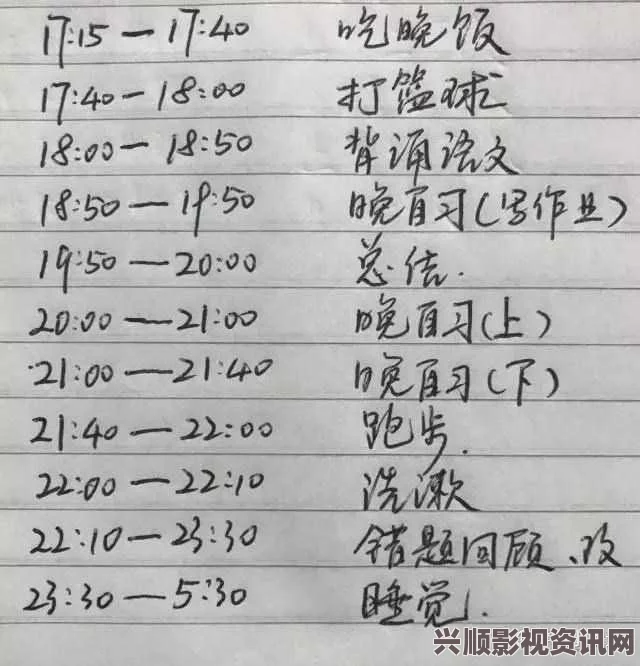 17:15 — 17:40 吃晚饭
17:40 — 18:00 打篮球
18:00 — 18:50 背诵语文
18:50 — 19:50 晚自习(写作业)
19:50 — 20:00 总结.
20:00 — 21:00 晚自习(上)
21:00 — 21:40 晚自习(下)
21:40 — 22:00 跑步.
22:00 — 22:10 洗漱
22:10 — 23:30 错题回顾、改
23:30 — 5:30 睡觉.
兴顺影视资讯网